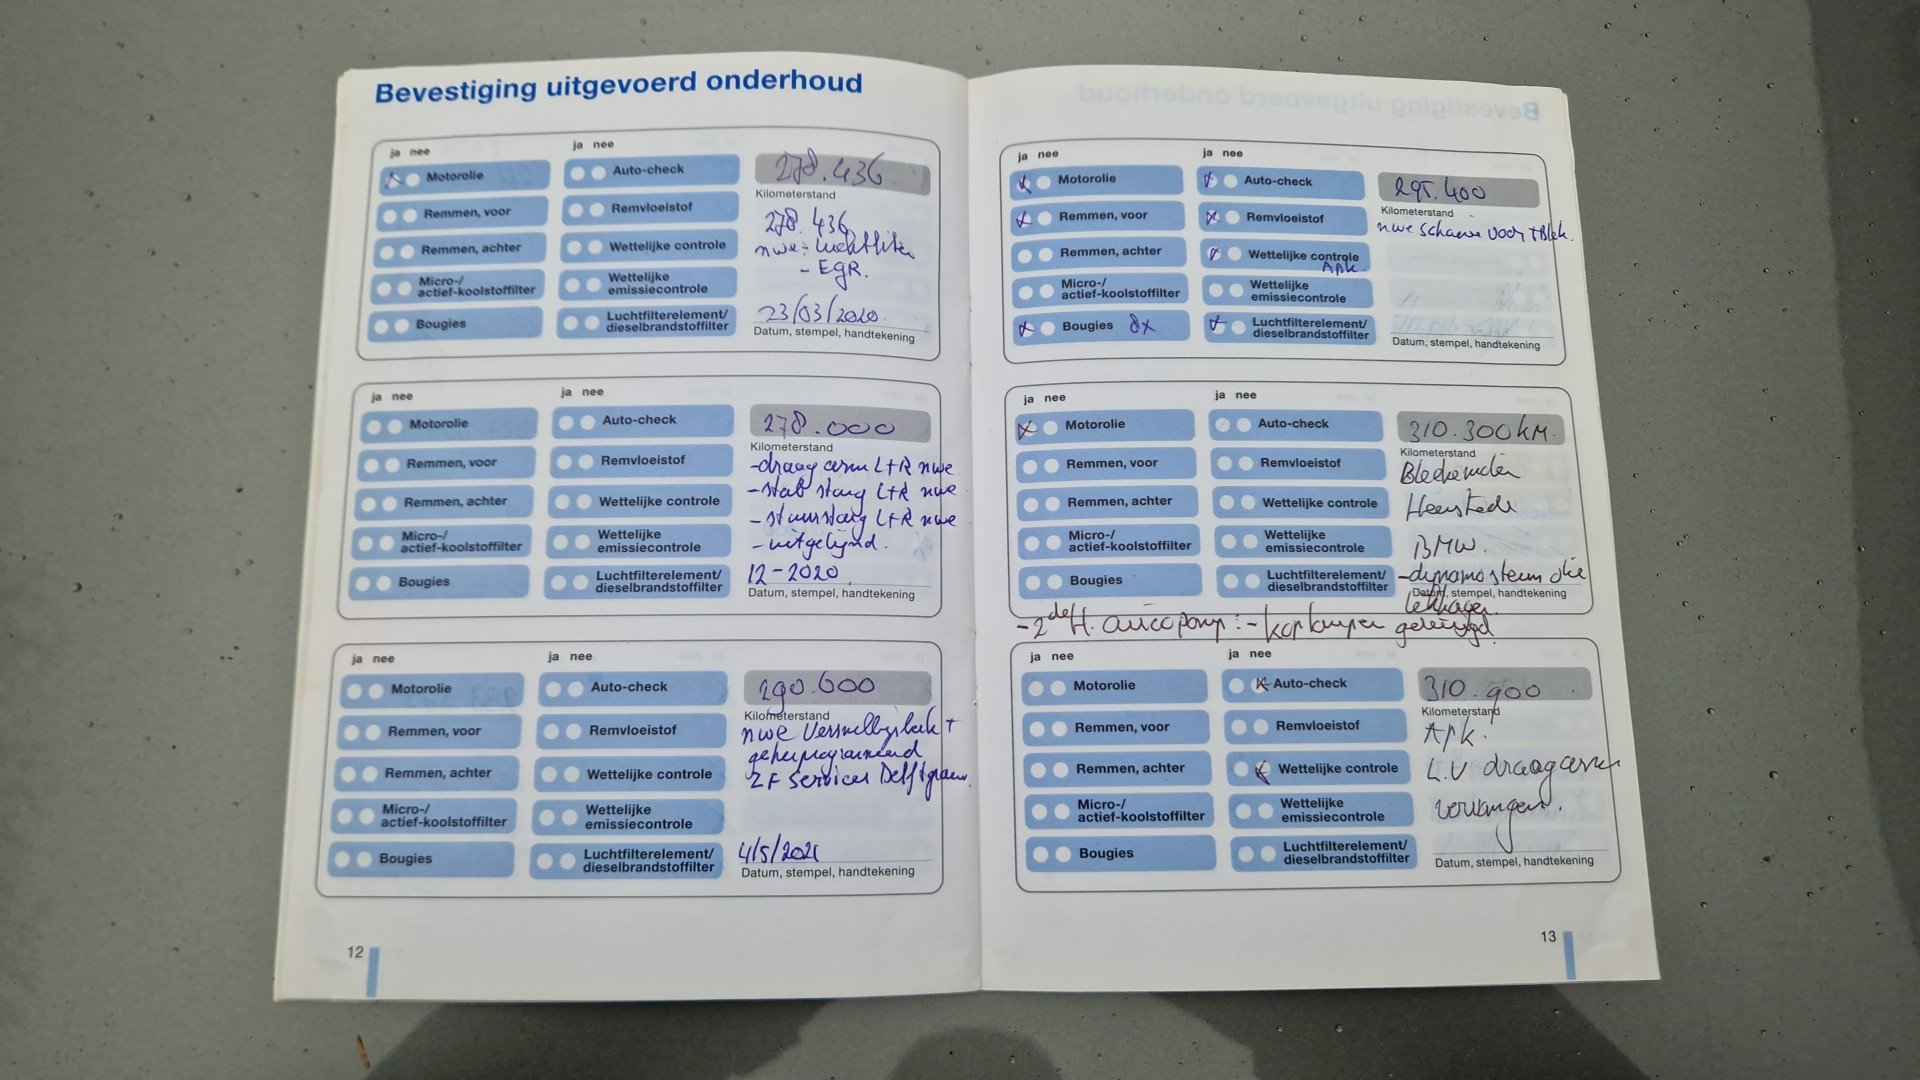 Bevestiging uitgevoerd onderhoud
ja nee
ja nee
Motorolie
Auto-check
278.436
Kilometerstand
Remmen, voor
Remvloeistof
278.436
Remmen, achter
Wettelijke controle
nwe - luchtfilter
- EGR.
Micro-/
actief-koolstoffilter
Wettelijke
emissiecontrole
Bougies
Luchtfilterelement/
dieselbrandstoffilter
23/03/2020
Datum, stempel, handtekening
ja nee
ja nee
Motorolie
Auto-check
278.000
Kilometerstand
Remmen, voor
Remvloeistof
-draagarm L+R nwe
Remmen, achter
Wettelijke controle
-stab stang L+R nwe
-stuurstang L+R nwe
Micro-/
actief-koolstoffilter
Wettelijke
emissiecontrole
-uitgelijnd.
Bougies
Luchtfilterelement/
dieselbrandstoffilter
12-2020
Datum, stempel, handtekening
ja nee
ja nee
Motorolie
Auto-check
290.600
Kilometerstand
Remmen, voor
Remvloeistof
nwe versnellingsbak +
Remmen, achter
Wettelijke controle
geherprogrammeerd
ZF Services
Micro-/
actief-koolstoffilter
Wettelijke
emissiecontrole
Bougies
Luchtfilterelement/
dieselbrandstoffilter
4/5/2021
Datum, stempel, handtekening
12
ja nee
ja nee
Motorolie
Auto-check
295.400
Kilometerstand
Remmen, voor
Remvloeistof
nwe schijven voor + Blok.
Remmen, achter
Wettelijke controle
Apk.
Micro-/
actief-koolstoffilter
Wettelijke
emissiecontrole
Bougies 8x
Luchtfilterelement/
dieselbrandstoffilter
Datum, stempel, handtekening
ja nee
ja nee
Motorolie
Auto-check
310.300KM.
Kilometerstand
Remmen, voor
Remvloeistof
Remmen, achter
Wettelijke controle
Heemstede
Micro-/
actief-koolstoffilter
Wettelijke
emissiecontrole
BMW.
Bougies
Luchtfilterelement/
dieselbrandstoffilter
-dynamosteun olie
Datum, stempel, handtekening
lekkage.
-2de H. aircopomp: - koplampen gereinigd
ja nee
ja nee
Motorolie
Auto-check
310.900
Kilometerstand
Remmen, voor
Remvloeistof
Apk.
Remmen, achter
Wettelijke controle
L.V draagarm
Micro-/
actief-koolstoffilter
Wettelijke
emissiecontrole
vervangen.
Bougies
Luchtfilterelement/
dieselbrandstoffilter
Datum, stempel, handtekening
13